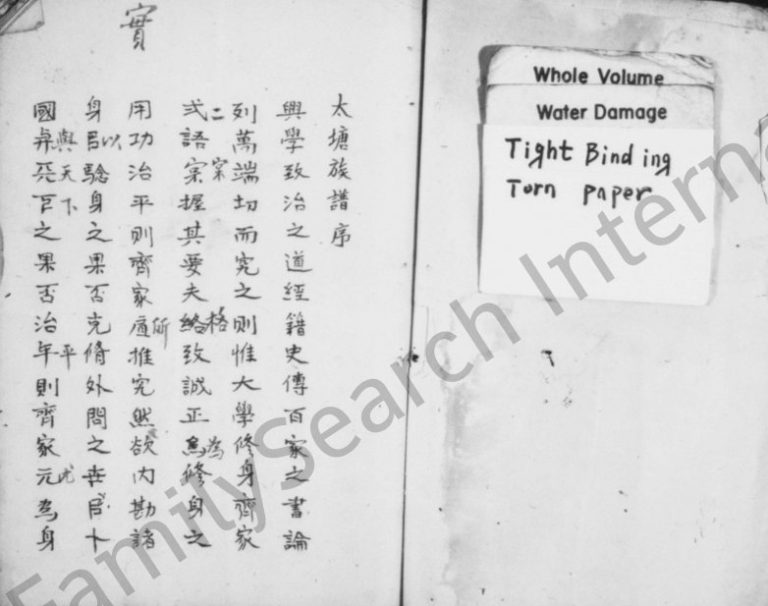 實
太塘族譜序
興學致治之道經籍史傳百家之書論
列萬端切而究之則惟大學修身齊家
二
式語宲握其要夫絡致誠正爲修身之
案
格
為
用功治平則齊家所推究然欲內勘諸
所
身㠯驗身之果否克脩外問之卋㠯卜
以
國 天下之果否治年則齊家元為身
與天下
平
尤
Whole Volume
Water Damage
Tight Binding
Torn paper
FamilySearch Intern